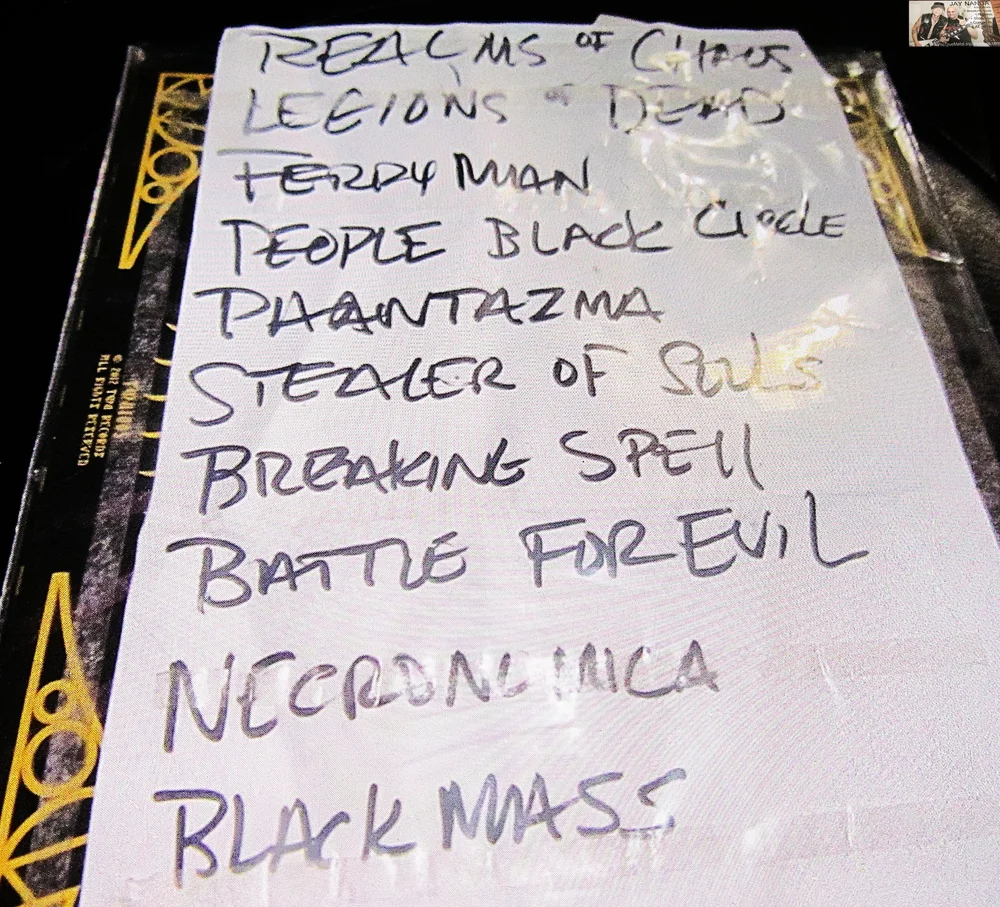 REALMS OF CHAOS
LEGIONS OF DEAD
FERRYMAN
PEOPLE BLACK CIRCLE
PHANTAZMA
STEALER OF SOULS
BREAKING SPELL
BATTLE FOR EVIL
NECRONOMICA
BLACK MASS
JAY NANDA
ALL RIGHTS RESERVED